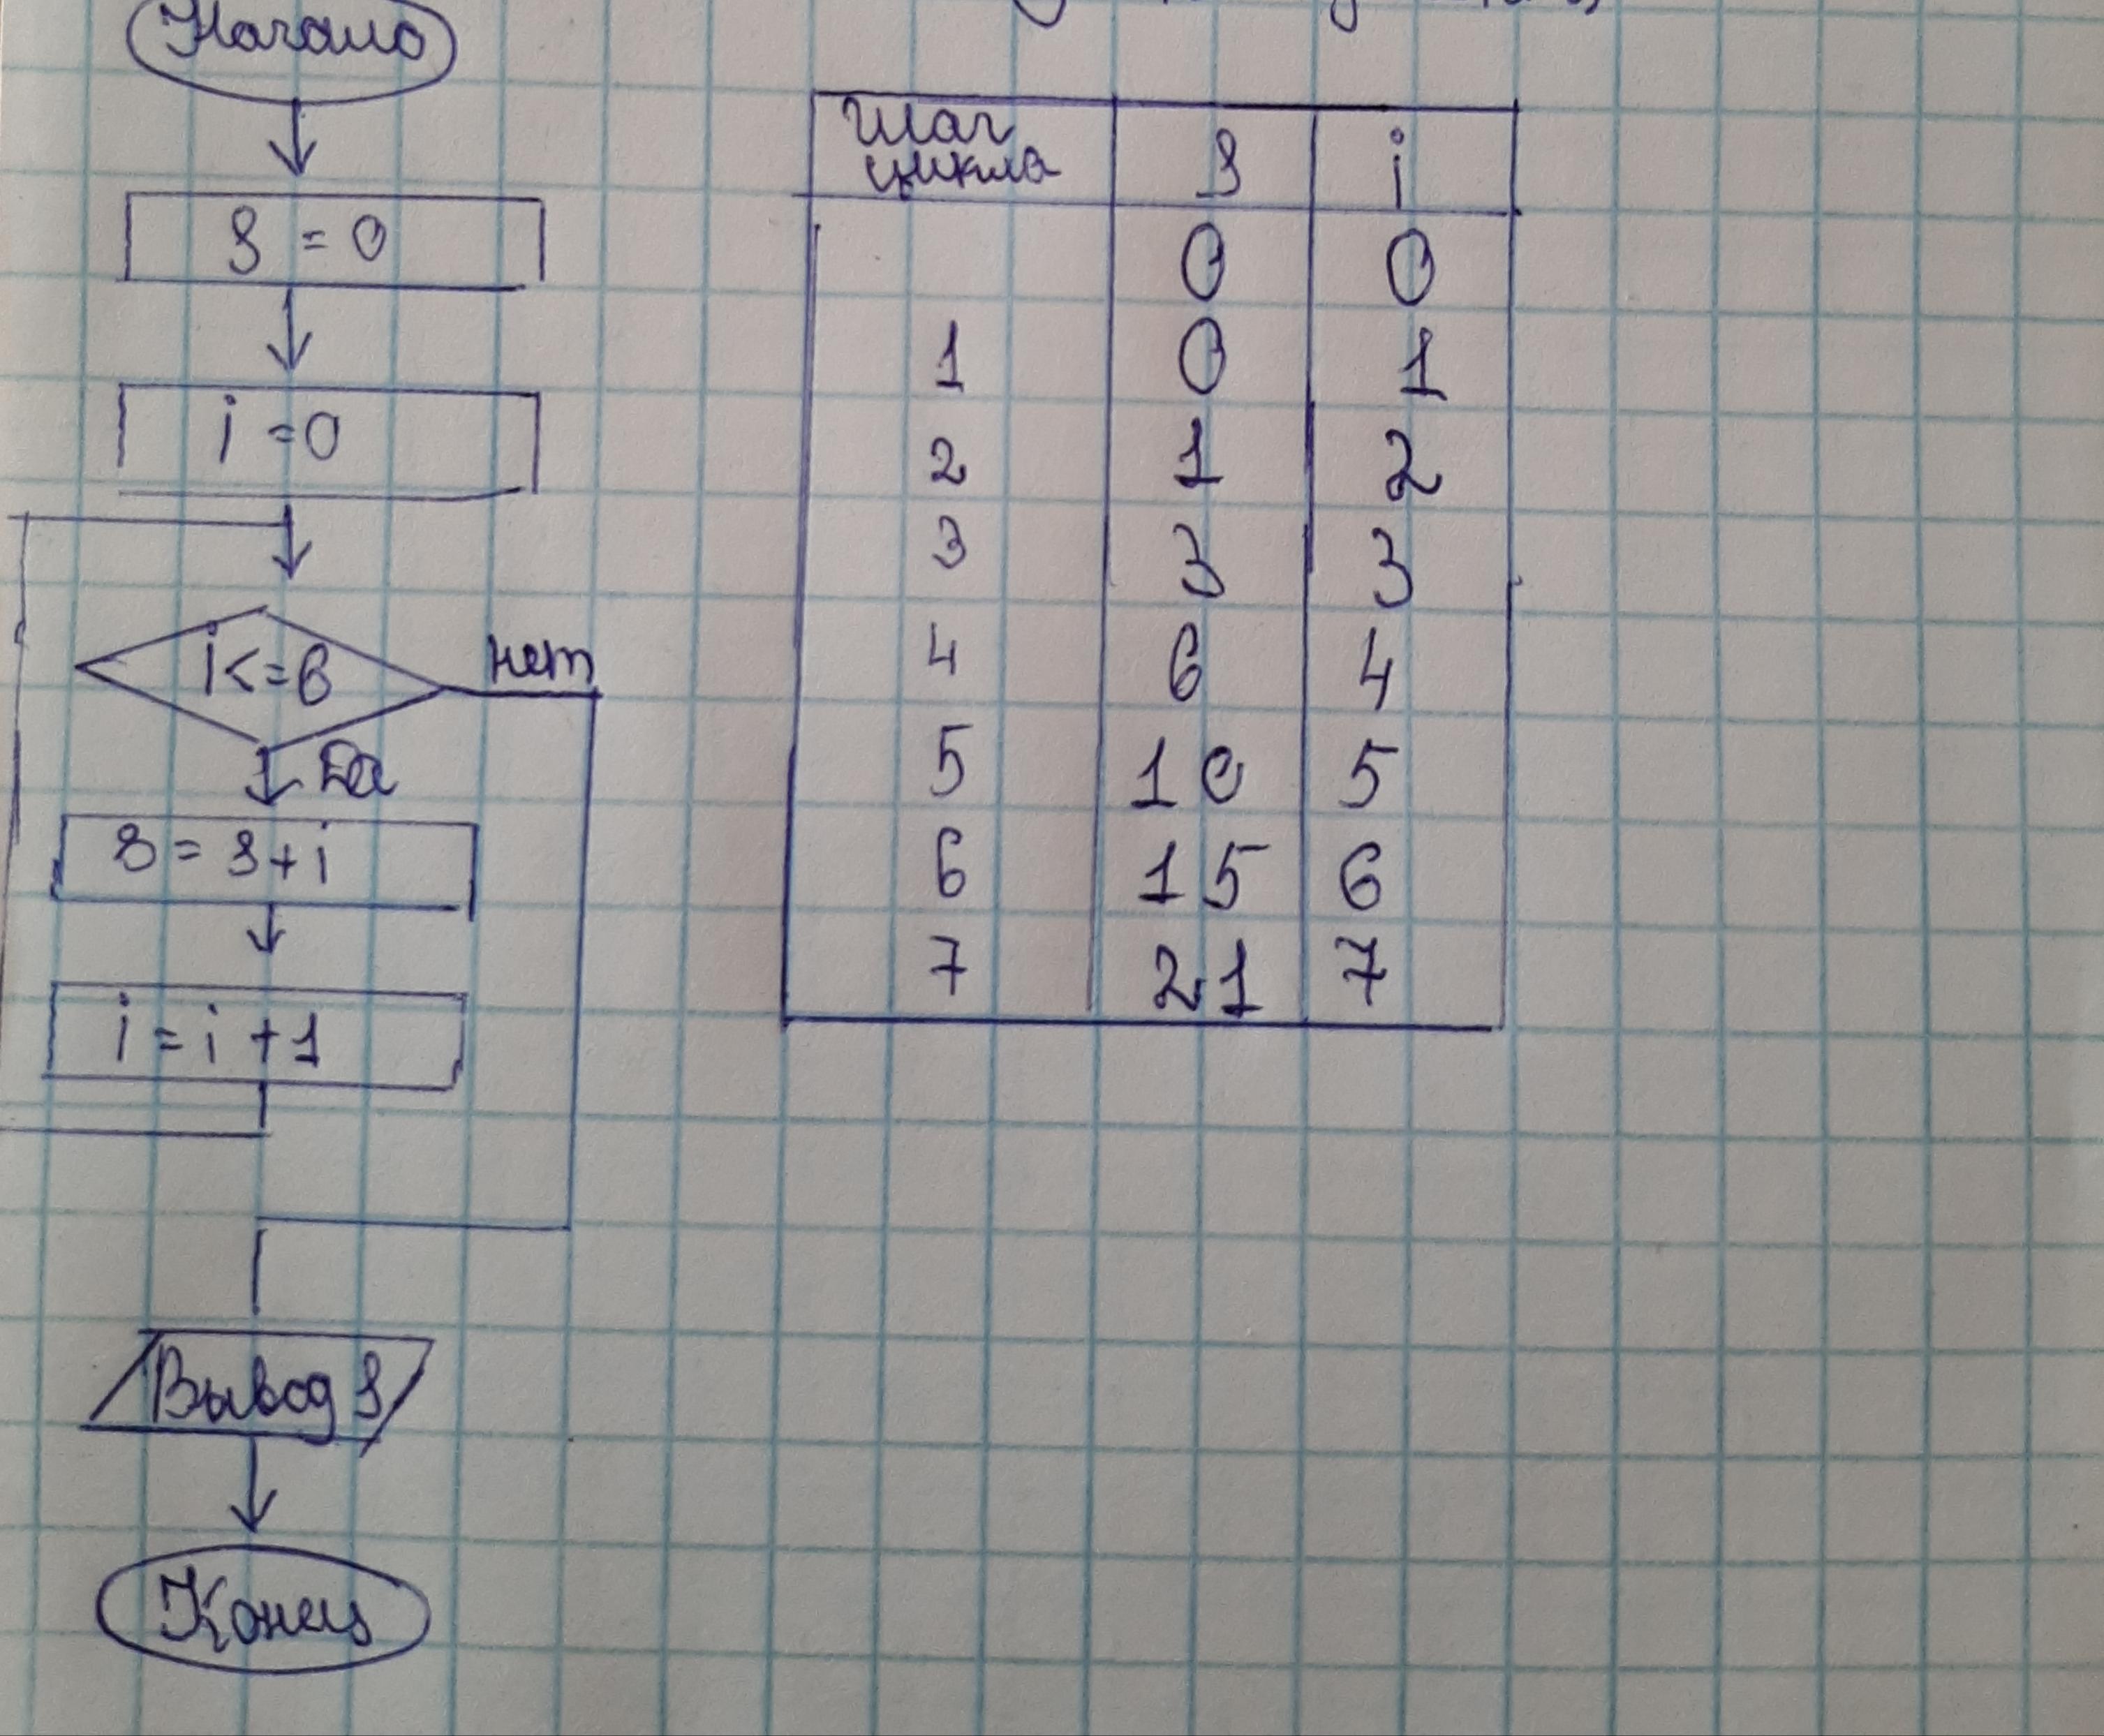 Начало
S = 0
i = 0
i <= 6
нет
Да
S = S + i
i = i + 1
Вывод S
Конец
Шаг цикла S i
0 0
1 0 1
2 1 2
3 3 3
4 6 4
5 10 5
6 15 6
7 21 7